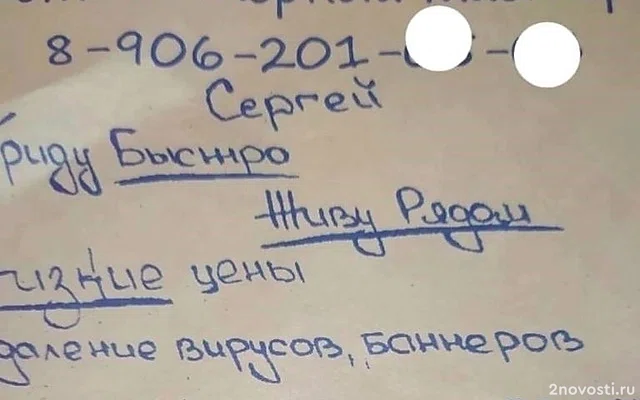 8-906-201-
Сергей
риду Быстро
Живу Рядом
изкие цены
даление вирусов, баннеров
2novosti.ru